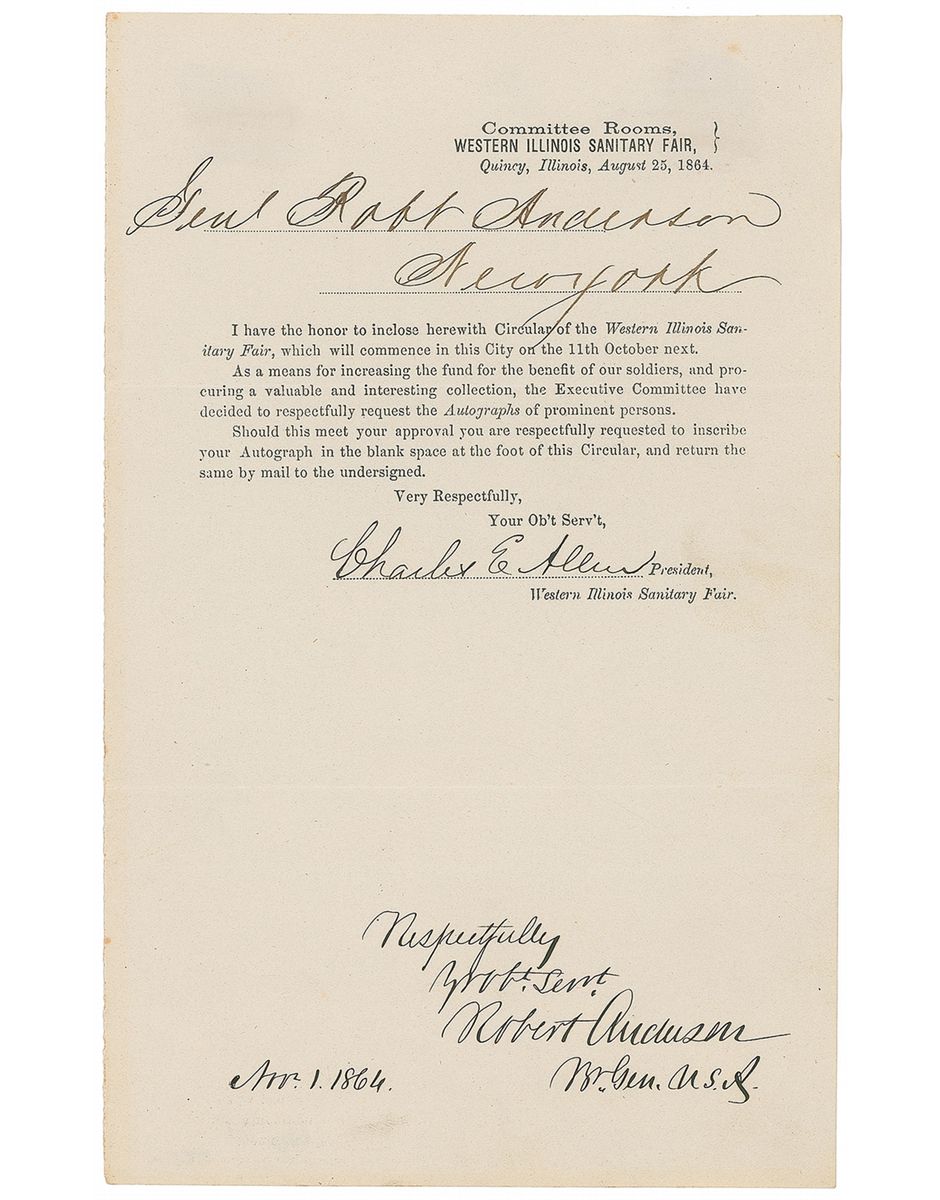 Committee Rooms,
WESTERN ILLINOIS SANITARY FAIR,
Quincy, Illinois, August 25, 1864.
Genl Robt Anderson
New York
I have the honor to inclose herewith Circular of the Western Illinois San-
itary Fair, which will commence in this City on the 11th October next.
As a means for increasing the fund for the benefit of our soldiers, and pro-
curing a valuable and interesting collection, the Executive Committee have
decided to respectfully request the Autographs of prominent persons.
Should this meet your approval you are respectfully requested to inscribe
your Autograph in the blank space at the foot of this Circular, and return the
same by mail to the undersigned.
Very Respectfully,
Your Ob't Serv't,
Charles E Allen President,
Western Illinois Sanitary Fair.
Respectfully
Yr obt. Servt.
Robert Anderson
Nov. 1. 1864. Br. Gen. U.S.A.